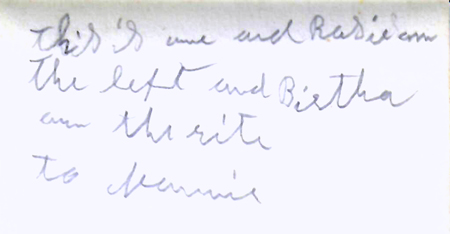 this is me and Rosie on
the left and Birtha
on the rite
to Mannie